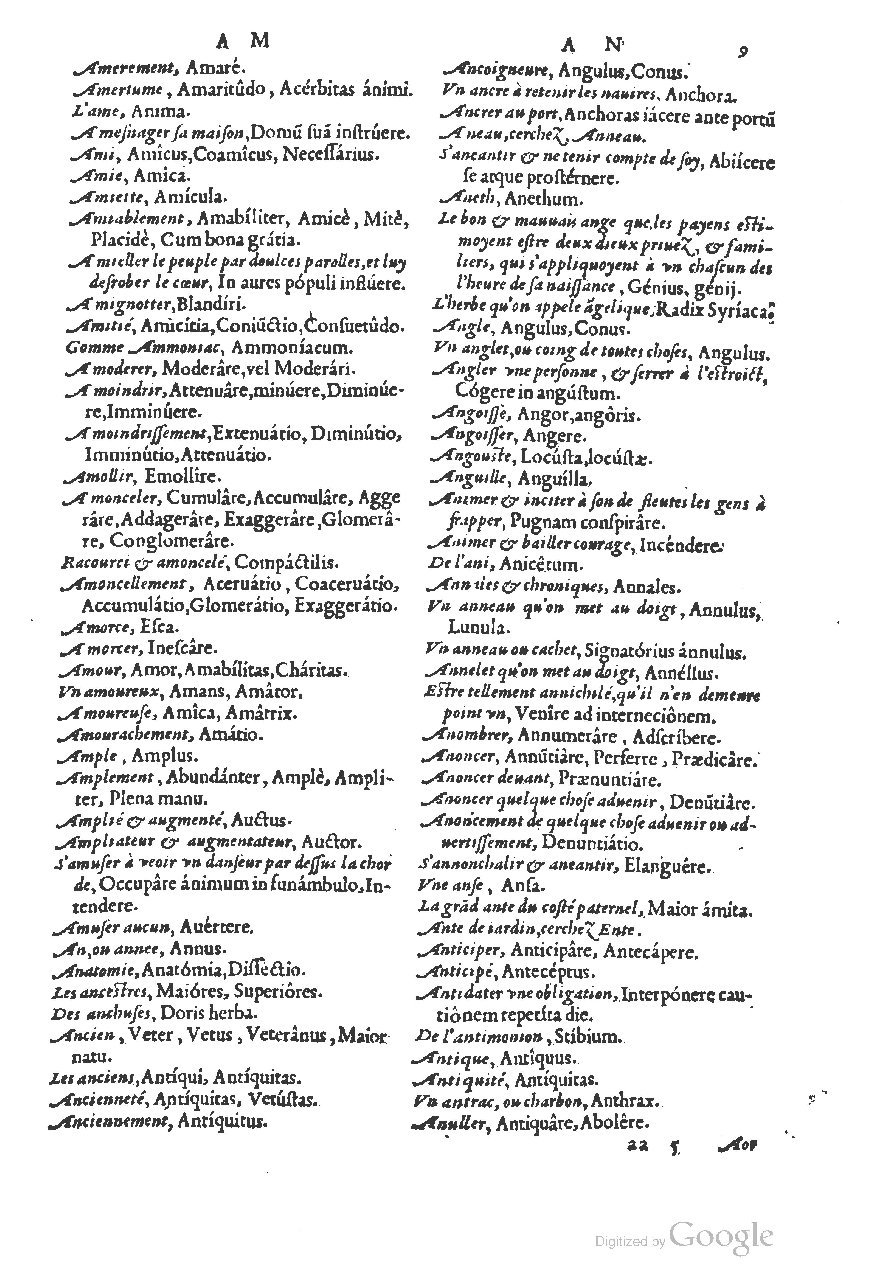 A M
Amerement, Amaré.
Amertume, Amaritûdo, Acérbitas ánimi.
L'ame, Anima.
A mesnager sa maison, Domũ suã instrúere.
Ami, Amîcus, Coamîcus, Necessárius.
Amie, Amica.
Amiette, Amícula.
Amiablement, Amabíliter, Amicè, Mitè,
Placidè, Cum bona grátia.
A mieller le peuple par doulces parolles, et luy
desrober le cœur, In aures pópuli inflúere.
A mignotter, Blandíri.
Amitié, Amicítia, Coniũctio, Consuetûdo.
Gomme Ammoniac, Ammoníacum.
A moderer, Moderâre, vel Moderári.
A moindrir, Attenuâre, minúere, Diminúe-
re, Imminúere.
A moindrissement, Extenuátio, Diminútio,
Imminútio, Attenuátio.
Amollir, Emollîre.
A monceler, Cumulâre, Accumulâre, Agge
râre, Addagerâre, Exaggerâre, Glomerâ-
re, Conglomerâre.
Racourci & amoncelé, Compáctilis.
Amoncellement, Aceruátio, Coaceruátio,
Accumulátio, Glomerátio, Exaggerátio.
Amorce, Esca.
A morcer, Inescâre.
Amour, Amor, Amabílitas, Cháritas.
Vn amoureux, Amans, Amâtor.
Amoureuse, Amîca, Amâtrix.
Amourachement, Amátio.
Ample, Amplus.
Amplement, Abundánter, Amplè, Ampli-
ter, Plena manu.
Amplié & augmenté, Auctus.
Ampliateur & augmentateur, Auctor.
S'amuser à veoir vn danseur par dessus la chor
de, Occupâre ánimum in funámbulo, In-
tendere.
Amuser aucun, Auértere.
An, ou annee, Annus.
Anatomie, Anatómia, Disséctio.
Les ancestres, Maióres, Superiôres.
Des anchuses, Doris herba.
Ancien, Veter, Vetus, Veterânus, Maior
natu.
Les anciens, Antíqui, Antíquitas.
Ancienneté, Antíquitas, Vetústas.
Anciennement, Antíquitus.
A N 9
Ancoigneure, Angulus, Conus.
Vn ancre à retenir les nauires, Anchora.
Ancrer au port, Anchoras iácere ante portũ
Aneau, cerchez, Anneau.
S'aneantir & ne tenir compte de soy, Abiícere
se atque prostérnere.
Aneth, Anethum.
Le bon & mauuais ange que les payens esti-
moyent estre deux dieux priuez, & fami-
liers, qui s'appliquoyent à vn chascun des
l'heure de sa naissance, Génius, génij.
L'herbe qu'on appele ãgelique, Radix Syríaca.
Angle, Angulus, Conus.
Vn anglet, ou coing de toutes choses, Angulus.
Angler vne personne, & serrer à l'estroict,
Cógere in angústum.
Angoisse, Angor, angôris.
Angoisser, Angere.
Angouste, Locústa, locústæ.
Anguille, Anguílla.
Animer & inciter à son de fleutes les gens à
frapper, Pugnam conspirâre.
Animer & bailler courage, Incéndere.
De l'ani, Anicêtum.
Annales & chroniques, Annales.
Vn anneau qu'on met au doigt, Annulus,
Lunula.
Vn anneau ou cachet, Signatórius ánnulus.
Annelet qu'on met au doigt, Annéllus.
Estre tellement annichilé, qu'il n'en demeure
point vn, Venîre ad interneciônem.
Anombrer, Annumerâre, Adscríbere.
Anoncer, Annũtiàre, Perferre, Prædicâre.
Anoncer deuant, Prænuntiáre.
Anoncer quelque chose aduenir, Denũtiâre.
Anoncement de quelque chose aduenir ou ad-
uertissement, Denuntiátio.
S'annonchalir & aneantir, Elanguére.
Vne anse, Ansa.
La grãd ante du costé paternel, Maior ámita.
Ante de iardin, cerchez Ente.
Anticiper, Anticipâre, Antecápere.
Anticipé, Antecéptus.
Antidater vne obligation, Interpónere cau-
tiônem repetíta die.
De l'antimonion, Stibium.
Antique, Antîquus.
Antiquité, Antíquitas.
Vn antrac, ou charbon, Anthrax.
Anuller, Antiquâre, Abolêre.
aa 5 Aor
Digitized by Google